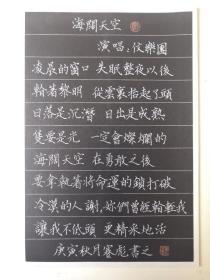 海闊天空
演唱：伩樂團
凌晨的窗口 失眠整夜以後
看着黎明 從雲裏抬起了頭
日落是沉潛 日出是成熟
隻要是光 一定會燦爛的
海闊天空 在勇敢之後
要拿執著將命運的鎖打破
冷漠的人 謝：妳們曾經看輕我
讓我不低頭 更精采地活
庚寅秋月賽彪書之